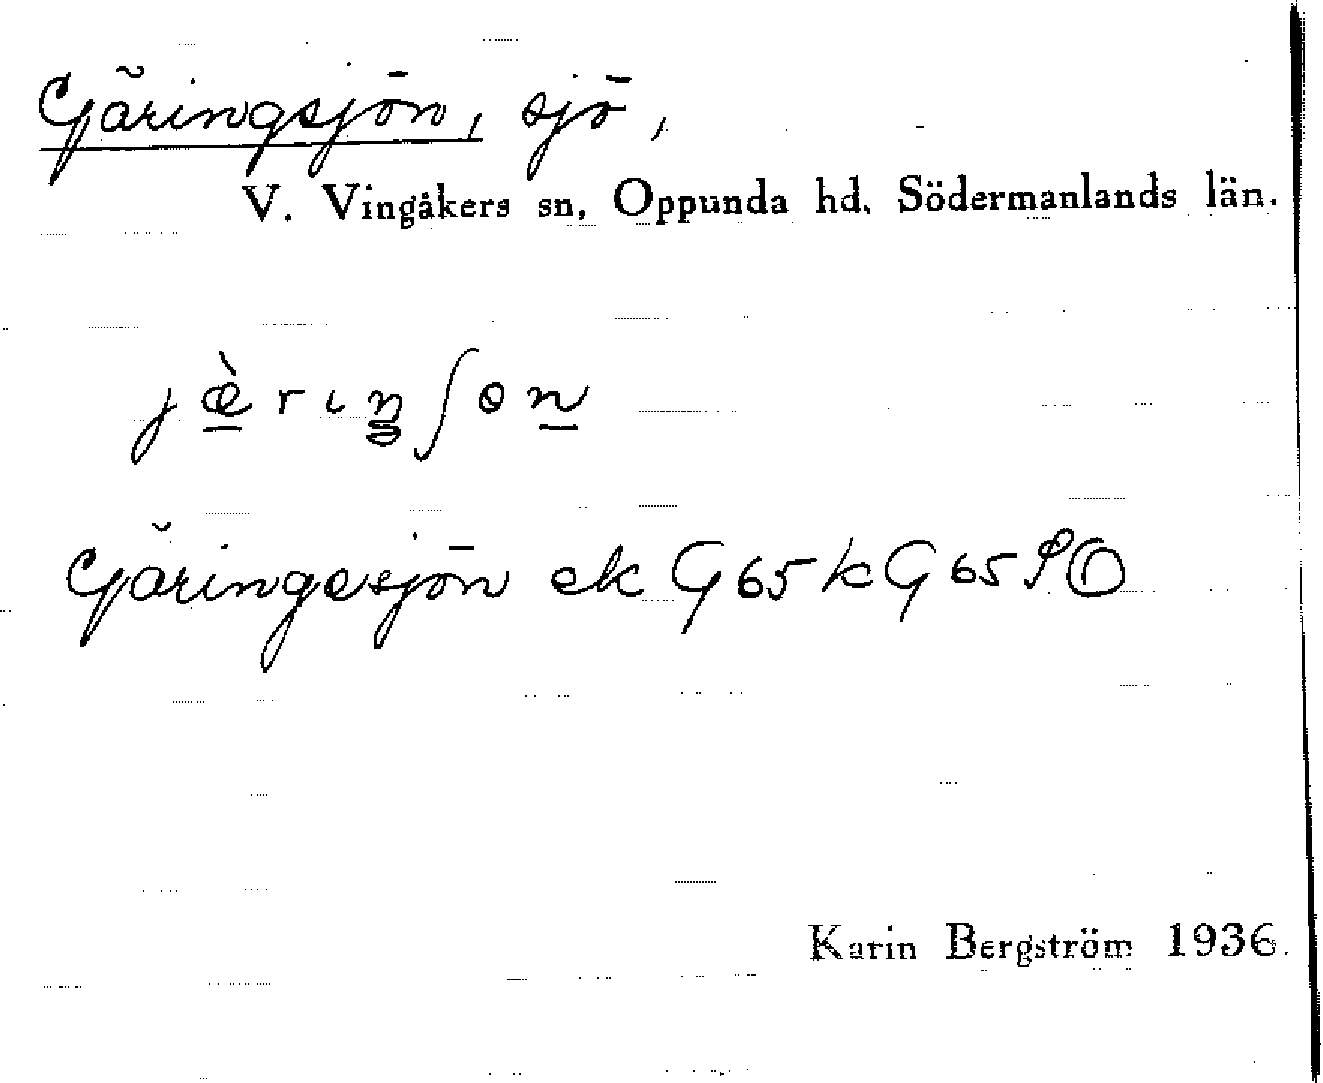 Gäringsjön, sjö,
V. Vingåkers sn, Oppunda hd, Södermanlands län.
jæ̀rıŋʃөn
Gäringesjön ek G65 k G65 SO
Karin Bergström 1936.